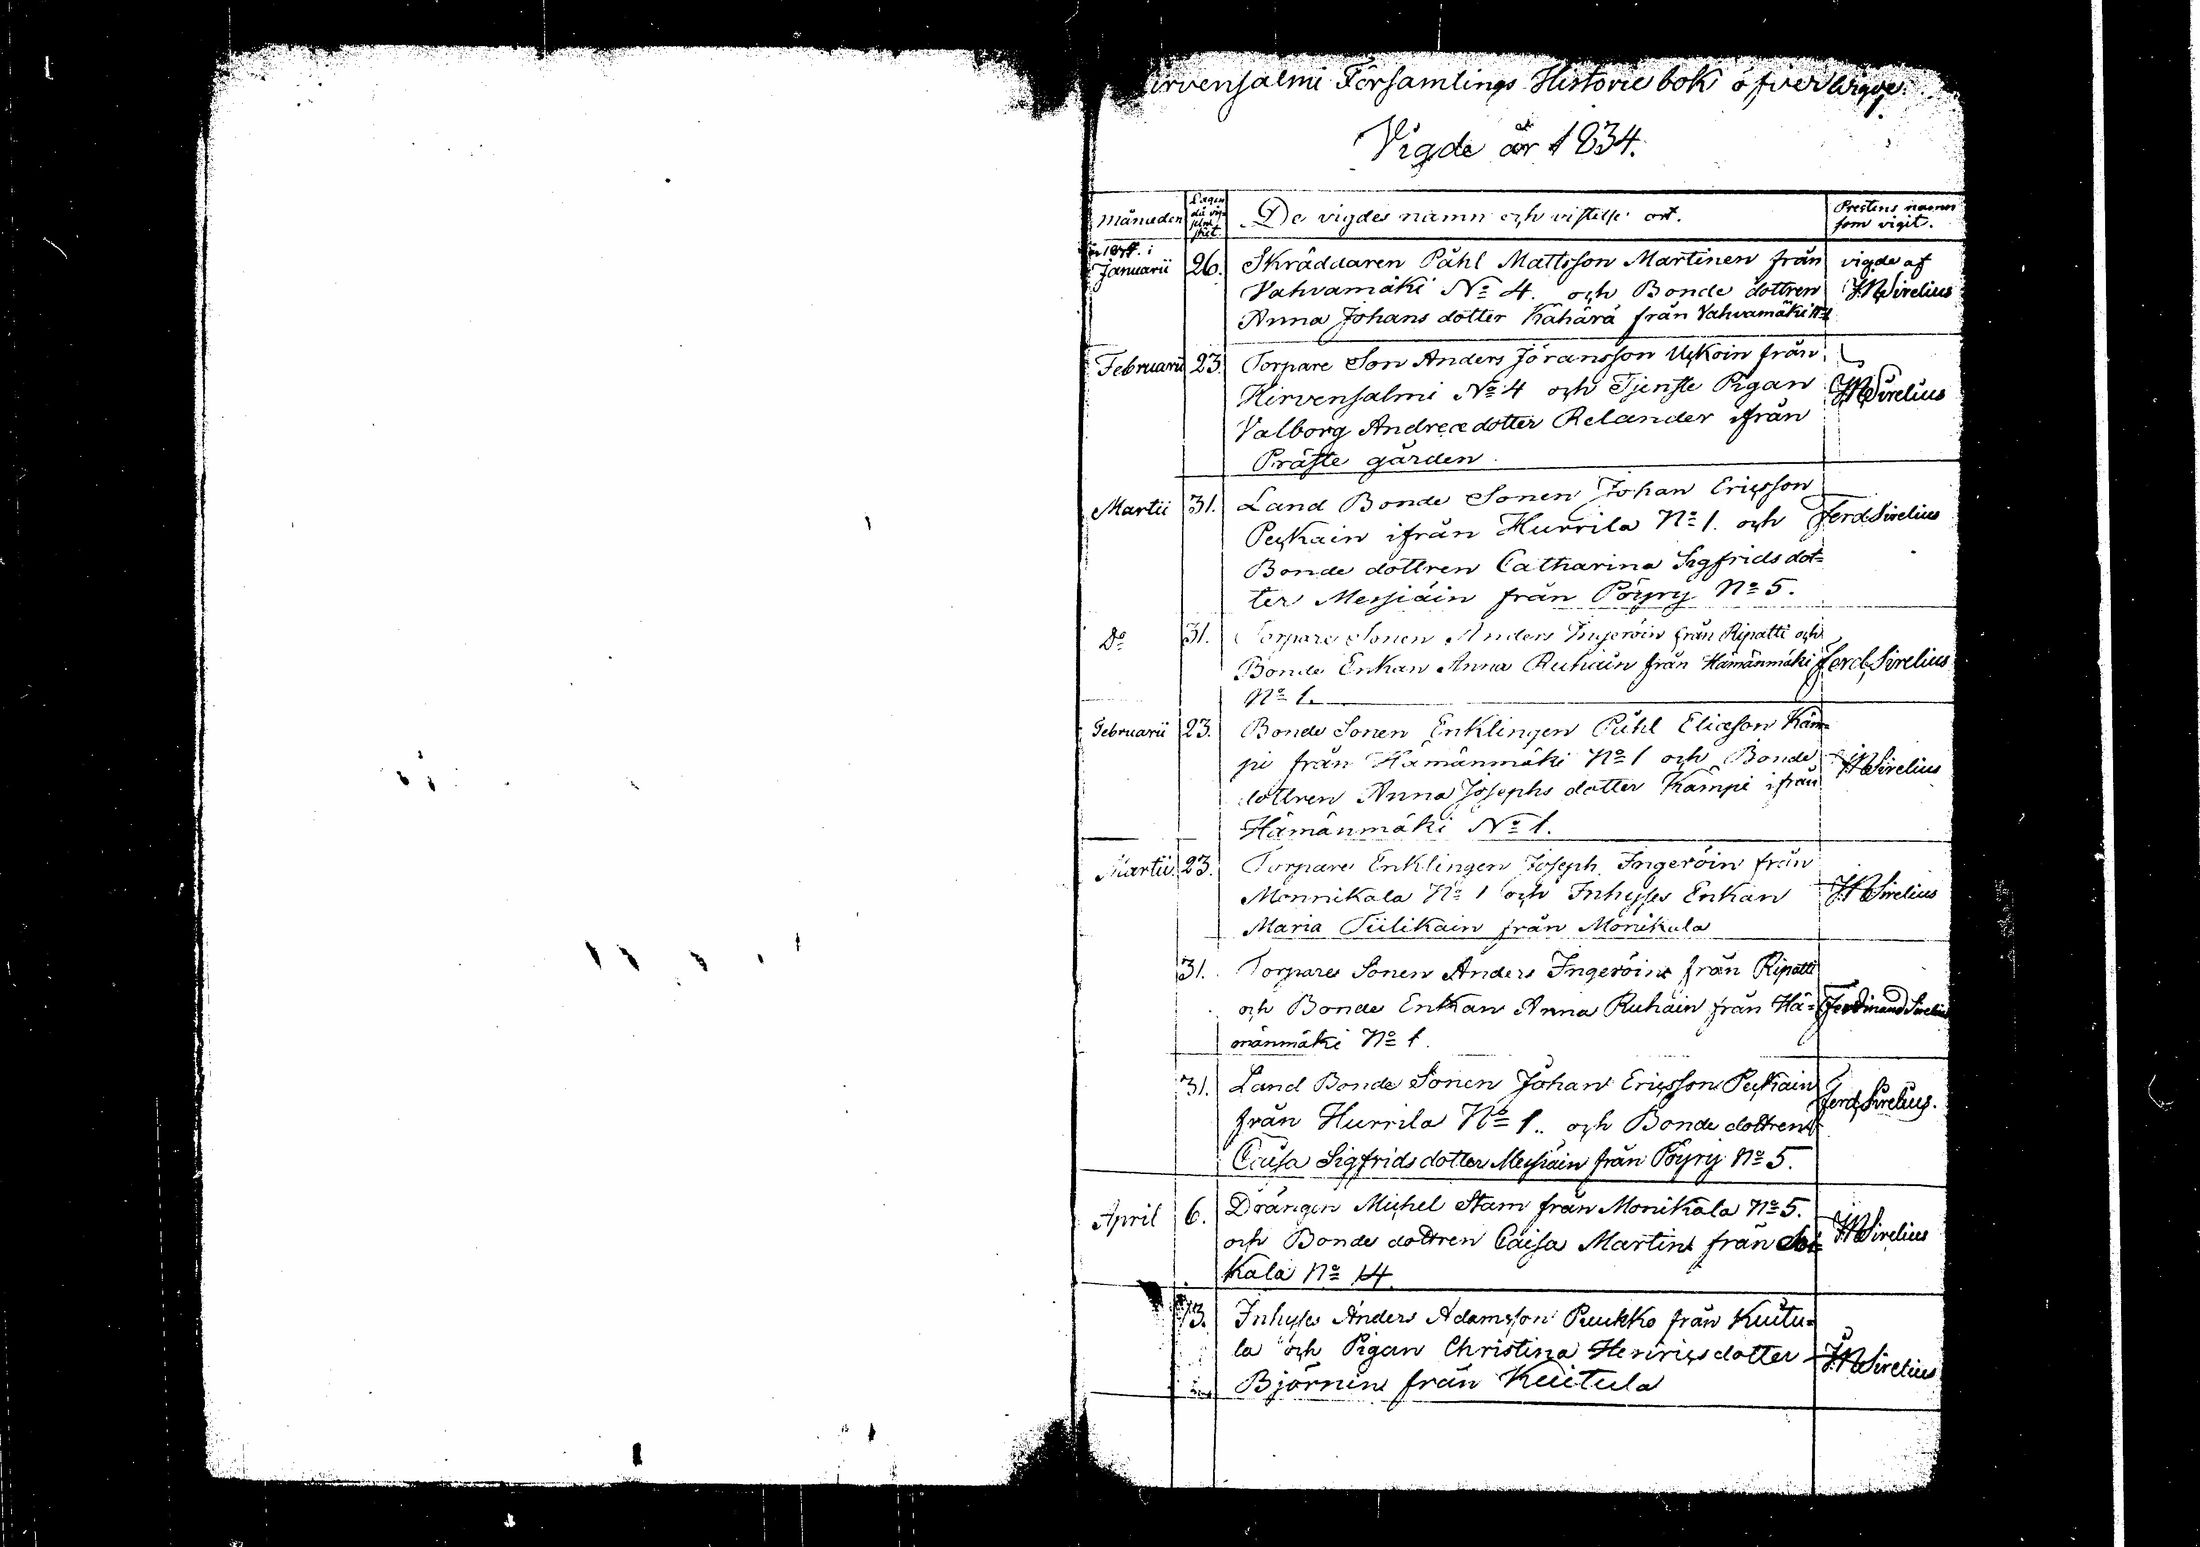 irvensalmi Församlings Historie bok öfver vigde.
Vigde år 1834.
Månaden Dagen då vig- skedt. De vigdes namn och vistelse ort. Prestens namn som vigit.
Januarii 26. Skräddaren Påhl Mattsson Martinen från vigde af
Vahvamäki No 4. och Bonde dottren Sirelius
Anna Johans dotter Kähärä från Vahvamäki
Februarii 23. Torpare Son Anders Jöransson Uckoin från
Hirvensalmi No 4 och Tjenste Pigan Sirelius
Valborg Andreædotter Relander ifrån
Präste gården.
Martii 31. Land Bonde Sonen Johan Ericsson
Peckain ifrån Hurrila No 1. och Ferd Sirelius
Bonde dottren Catharina Sigfrids dot=
ter Messiäin från Pöyry No 5.
Do 31. Torpare Sonen Anders Ingeröin från Ripatti och
Bonde Enkan Anna Ruhäin från Hämänmäki Ferd Sirelius
No 1.
Februarii 23. Bonde Sonen Enklingen Påhl Eliæson Käm=
pi från Hämänmäki No 1 och Bonde Sirelius
dottren Anna Josephs dotter Kämpi ifrån
Hämänmäki No 1.
Martii 23. Torpare Enklingen Joseph Ingeröin från
Monnikala No 1 och Inhyses Enkan Sirelius
Maria Tiilikain från Monikala
31. Torpare Sonen Anders Ingeröin från Ripatti
och Bonde Enkan Anna Ruhäin från Hä= Ferdinand Sirelius
mänmäki No 1.
31. Land Bonde Sonen Johan Ericsson Peckain Ferd Sirelius.
från Hurrila No 1. och Bonde dottren
Caisa Sigfrids dotter Messiäin från Pöyry No 5.
April 6. Drängen Michel Stam från Monikala No 5.
och Bonde dottren Caisa Martin från Sirelius
kala No 14.
13. Inhyses Anders Adamsson Puukko från Kuitu=
la och Pigan Christina Henricsdotter Sirelius
Björnin från Kuitula